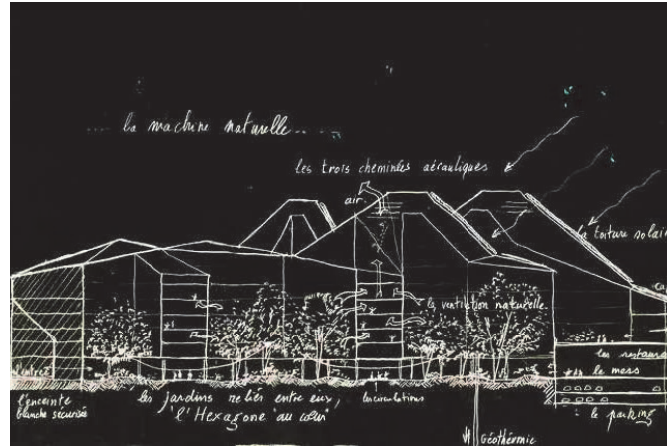 ... la machine naturelle ...
les trois cheminées aérauliques
air
la toiture solair
la ventilation naturelle
l'entrée
les restaura
le mess
l'enceinte
blanche sécurisée
les jardins reliés entre eux,
"l'Hexagone au cœur"
les circulations
le parking
Géothermie